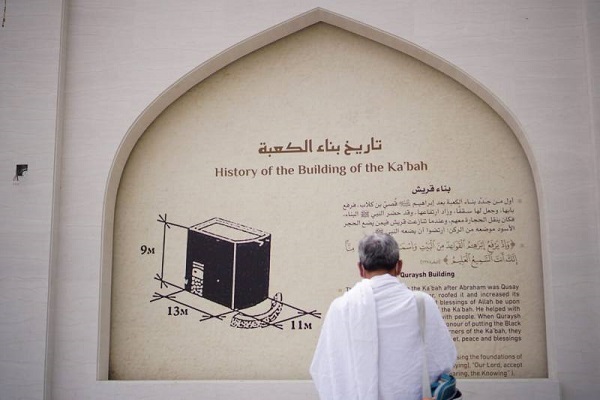 تاريخ بناء الكعبة
History of the Building of the Ka'bah
بناء قريش
أول من جدد بناء الكعبة بعد إبراهيم ﷺ قصي بن كلاب، فرفع
بابها، وجعل لها سقفا، وزاد ارتفاعها، وقد حضر النبي ﷺ البناء،
فكان ينقل الحجارة معهم، وعندما تنازعت قريش فيمن يضع الحجر
الأسود موضعه من الركن، ارتضوا أن يضعه النبي
إنك أنت السميع العليم
Quraysh Building
Ka'bah after Abraham was Qusay
roofed it and increased its
blessings of Allah be upon
the Ka'bah. He helped with
with people. When Quraysh
honour of putting the Black
corners of the Ka'bah, they
peace and blessings
the foundations of
"Our Lord, accept
the Knowing"
9м
13м
11м